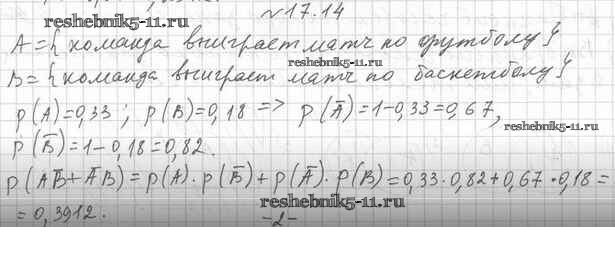 №17.14
reshebnik5-11.ru
A={команда выиграет матч по футболу}
reshebnik5-11.ru
B={команда выиграет матч по баскетболу}
p(A)=0,33; p(B)=0,18 => p(Ā)=1-0,33=0,67,
reshebnik5-11.ru
p(B̄)=1-0,18=0,82.
p(AB̄+ĀB)=p(A)·p(B̄)+p(Ā)·p(B)=0,33·0,82+0,67·0,18=
=0,3912.
reshebnik5-11.ru
-2-